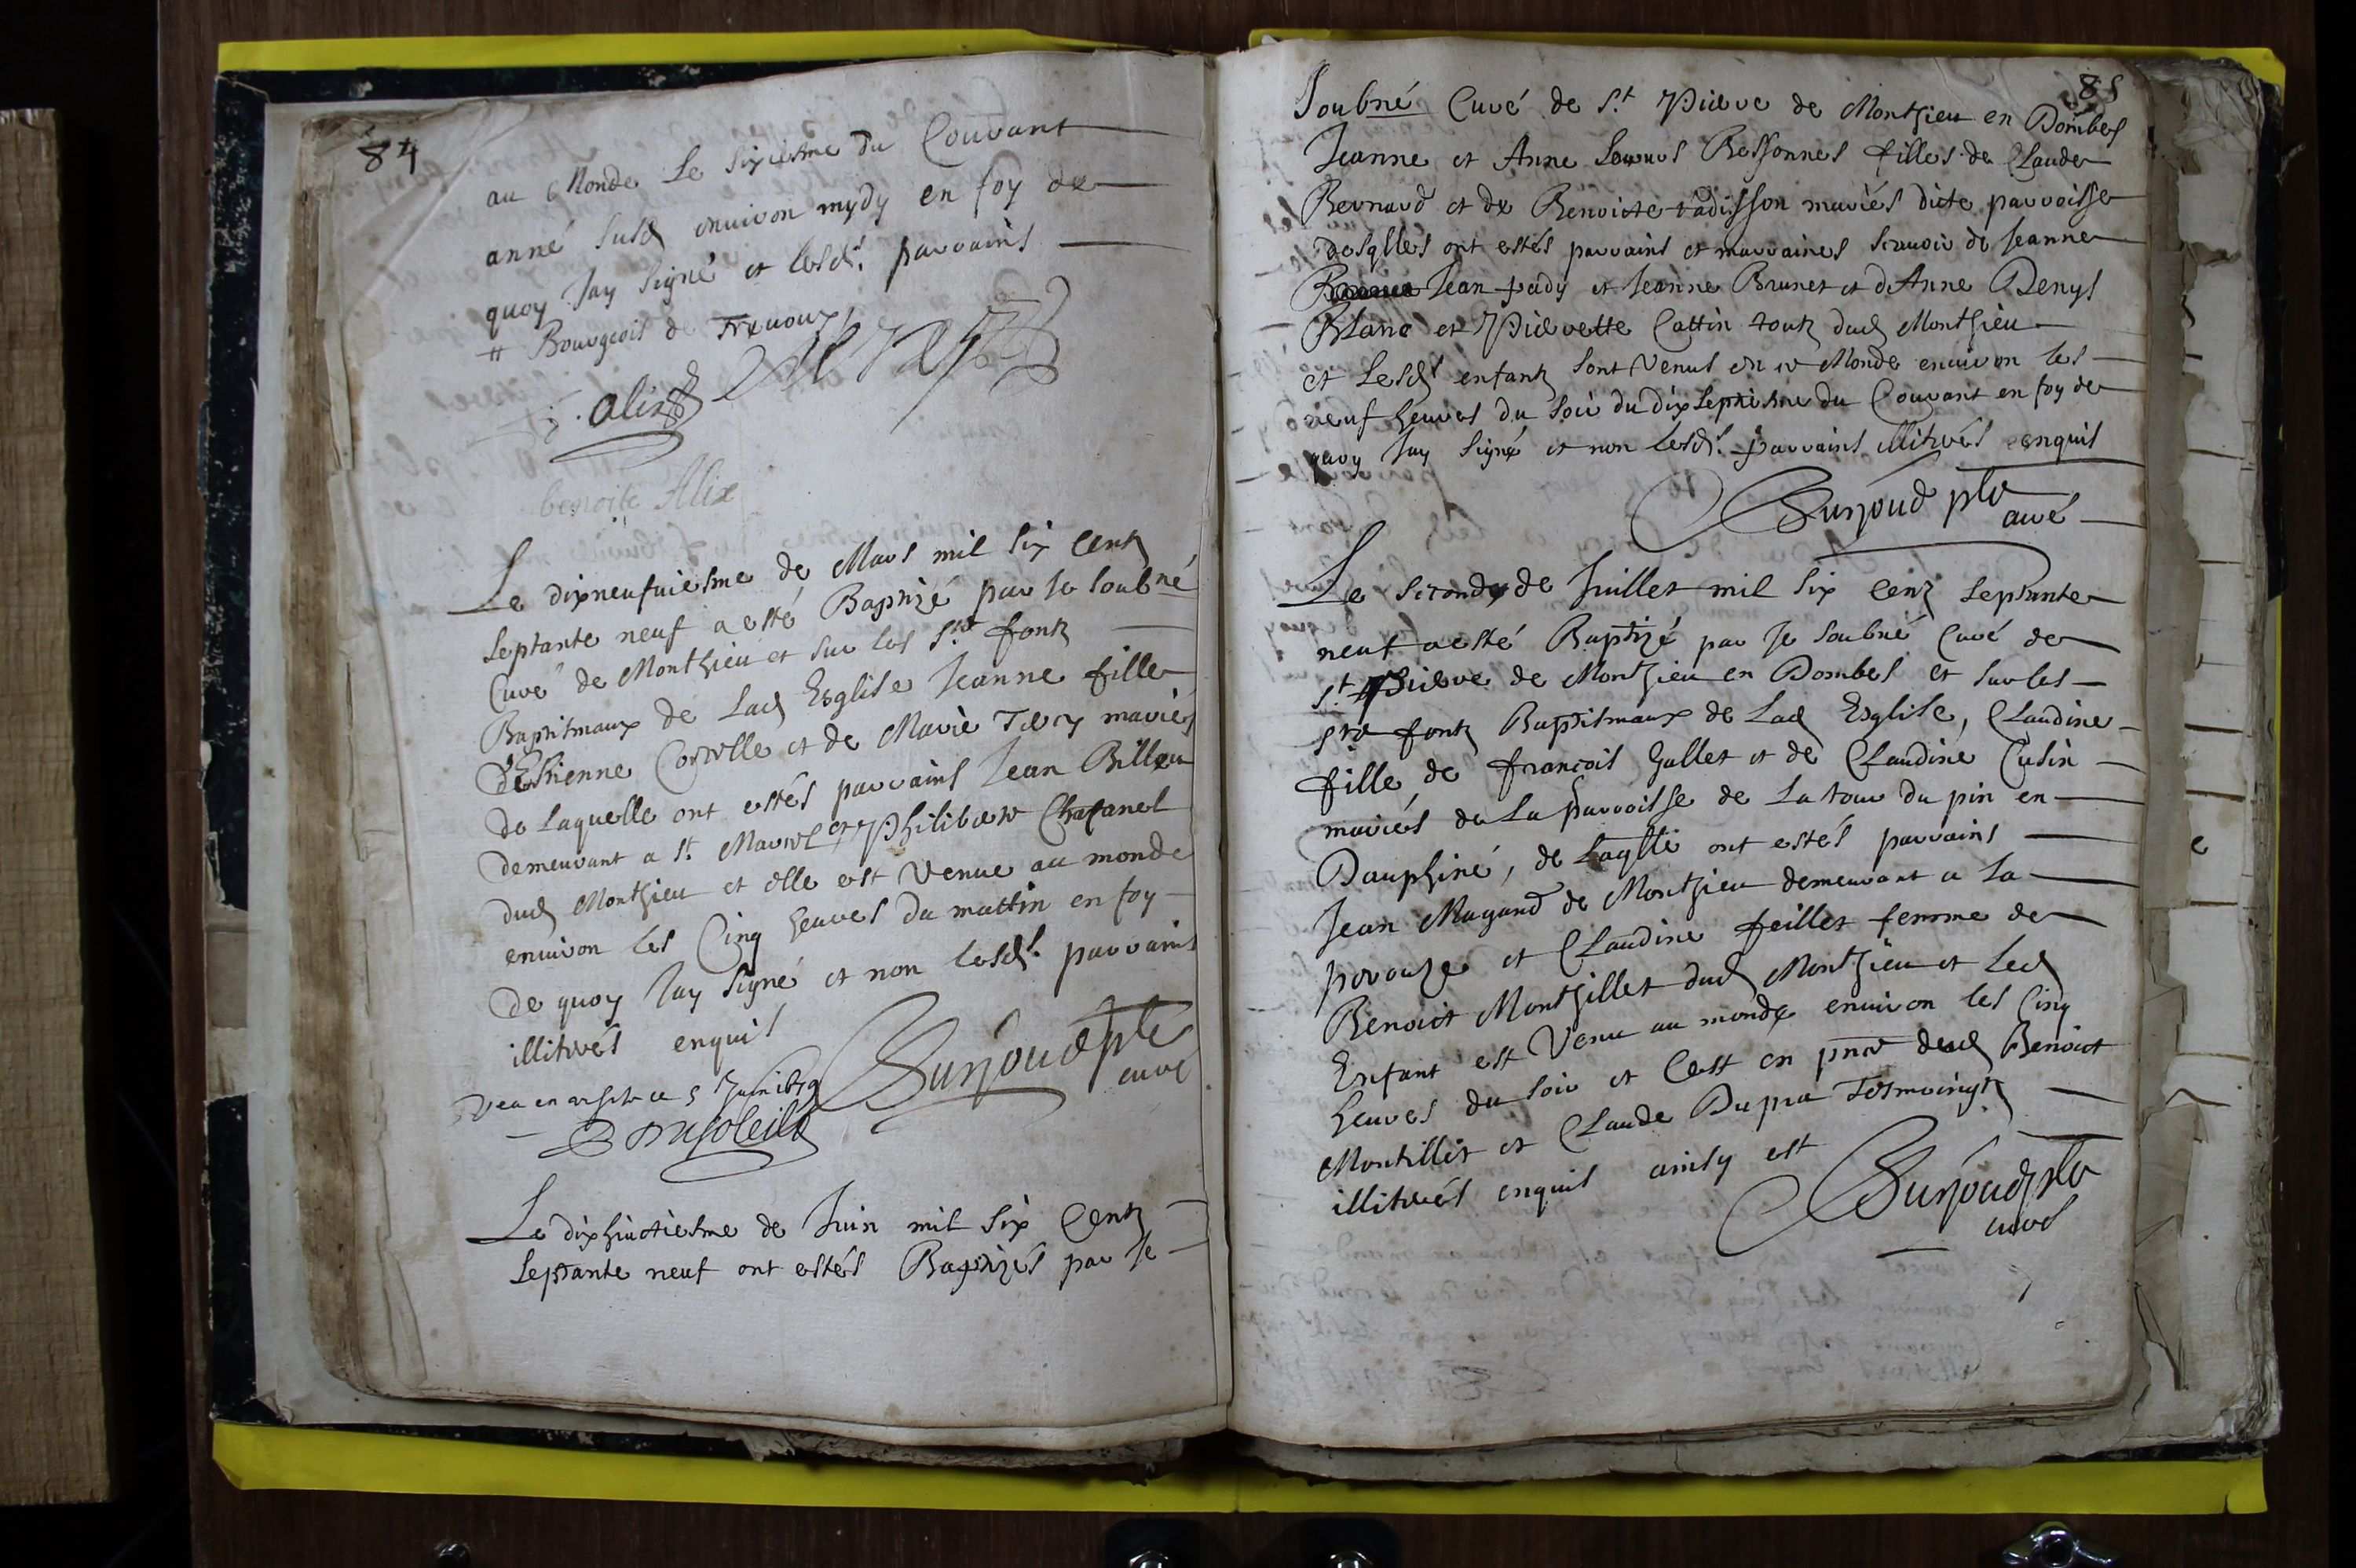 84
au Monde Le sixiesme du Courant
anné susd environ mydy en foy de
quoy Jay signé et lesds. parrains
# Bourgeois de Treuoux
alix
benoite Alix
Le dixneufuiesme de Mars mil six Centz
septante neuf a esté Baptizé par Je soubné
Curé de Monthieu et sur les sts fontz
Baptismaux de Lad Esglise Jeanne fille
d'Estienne et de Marie mariés
de Laquelle ont estés parrains Jean Billon
demeurant a st. Marcel et Philibert Chafanel
dud Monthieu et elle est Venue au monde
environ les Cinq heures du mattin en foy
de quoy Jay signé et non lesds. parrains
illitrés enquis
Surjoud ptre
curé
Veu en visite ce 5 Juin 1679
Le dixhuictiesme de Juin mil six Centz
septante neuf ont estés Baptizés par Je
85
soubné Curé de st Pierre de Monthieu en Dombes
Jeanne et Anne Bessonnes filles de Claude
Bernard et de Benoicte mariés dicte parroisse
desqlles ont estés parrains et marraines scauoir de Jeanne
Jean fady et Jeanne Brunet et d'Anne Denys
Blanc et Pierrette Cattin toutz dud Monthieu
et Lesds enfantz sont Venus en ce Monde environ les
neuf heures du soir du dixseptiesme du Courant en foy de
quoy Jay signé et non lesds. parrains illitrés enquis
Surjoud ptre
curé
Le second de Juillet mil six Centz septante
neuf a esté Baptizé par Je soubné Curé de
st Pierre de Monthieu en Dombes et sur les
sts fontz Baptismaux de Lad Esglise, Claudine
fille de francois Gallet et de Claudine Cusin
mariés de La parroisse de La tour du pin en
Dauphiné, de Laqlle ont estés parrains
Jean Magaud de Monthieu demeurant a La
perouze et Claudine feillet femme de
Benoict Monthillet dud Monthieu et Led
Enfant est Venu au monde environ les Cinq
heures du soir et Cest en pnce dud Benoict
Montillet et Claude Dupra Tesmoingtz
illitrés enquis ainsy est
Surjoud ptre
curé